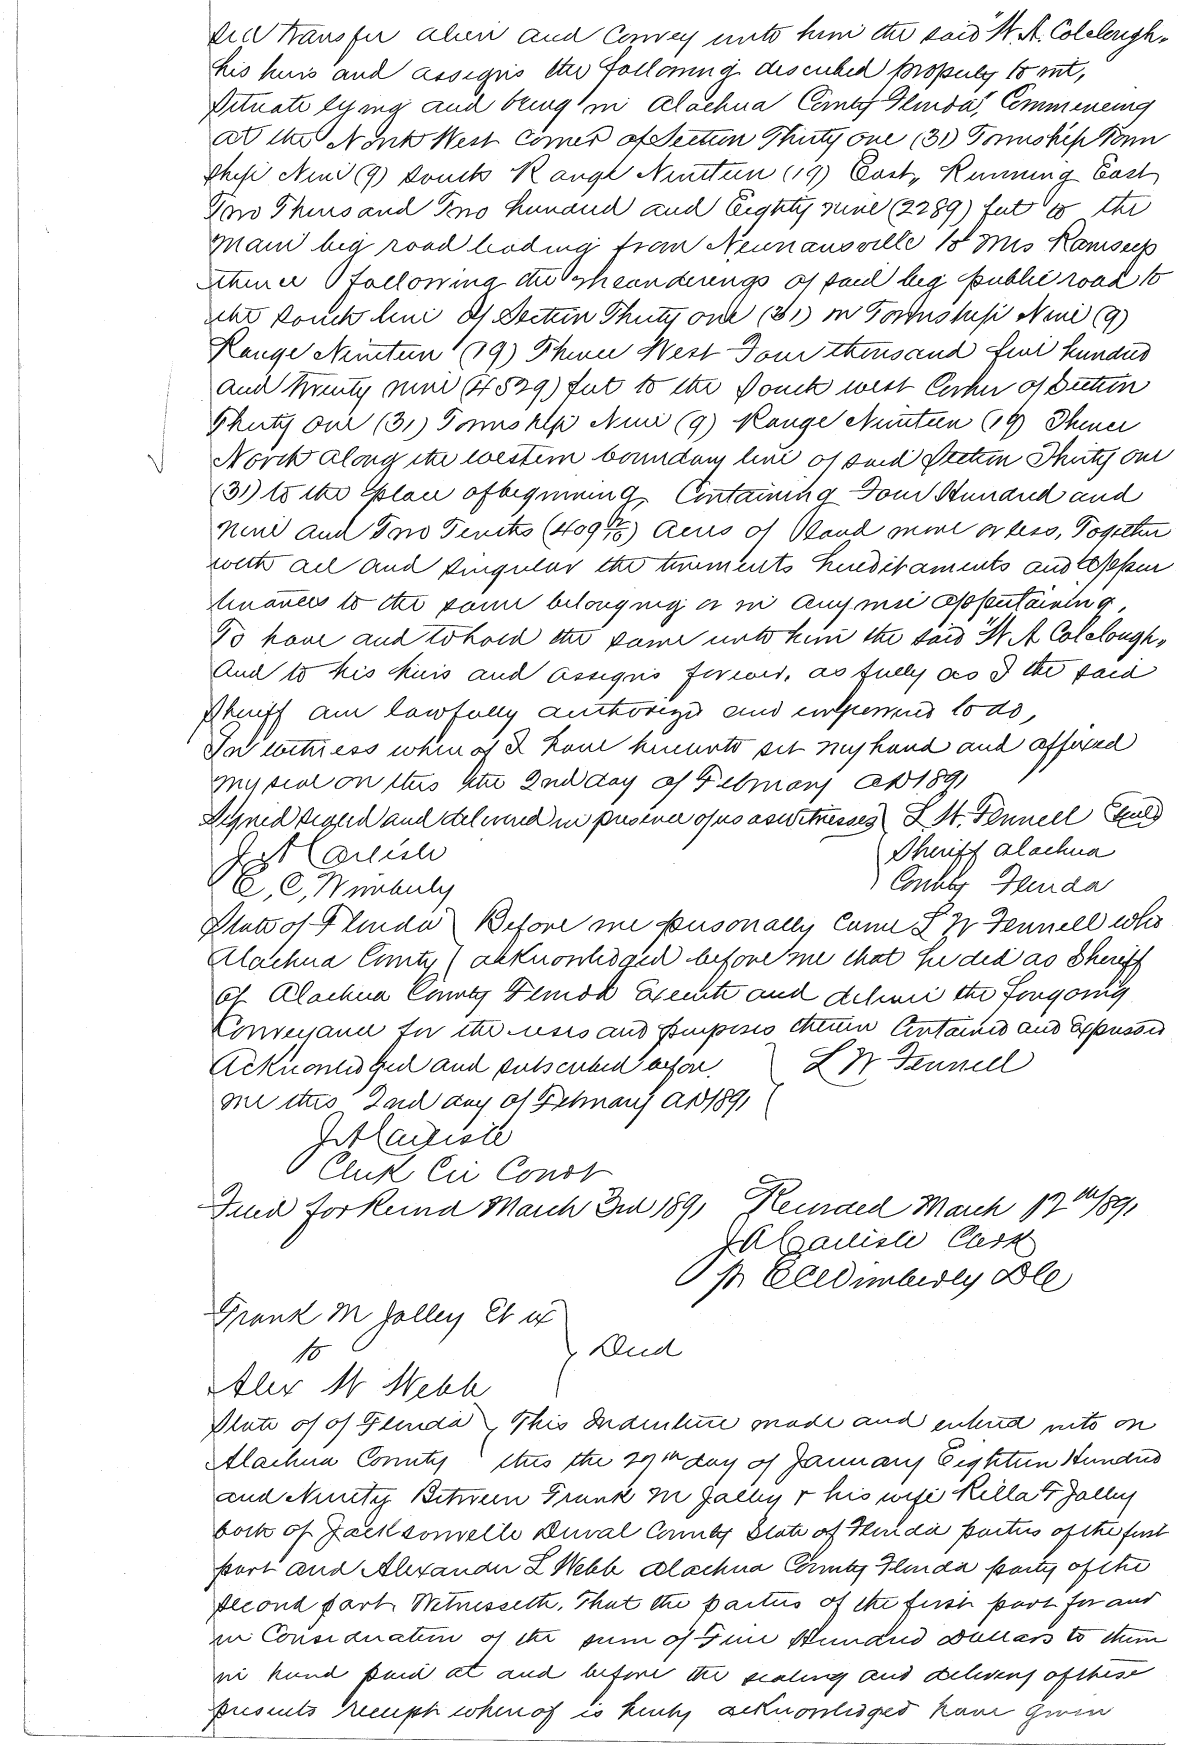 sell transfer alien and Convey unto him the said "W. A. Colclough"
his heirs and assigns the following described property to wit,
Situate lying and being in Alachua County Florida, Commencing
at the North West Corner of Section Thirty one (31) Township Town
ship Nine (9) South Range Nineteen (19) East, Running East
Two Thousand Two hundred and Eighty nine (2289) feet to the
main big road leading from Newnansville to Mrs Ramseys
thence following the meanderings of said big public road to
the South line of Section Thirty one (31) in Township Nine (9)
Range Nineteen (19) Thence West Four thousand five hundred
and twenty nine (4529) feet to the South west Corner of Section
Thirty one (31) Township Nine (9) Range Nineteen (19) Thence
North along the western boundary line of said Section Thirty one
(31) to the place of beginning, Containing Four Hundred and
nine and Two Tenths (409 2/10) Acres of Land more or less, Together
with all and singular the tenements hereditaments and appur
tinances to the same belonging or in anywise appertaining,
To have and to hold the same unto him the said "W. A Colclough"
And to his heirs and assigns forever, as fully as I the said
Sheriff am lawfully authorized and empowered to do,
In witness whereof I have hereunto set my hand and affixed
my seal on this the 2nd day of February AD 1891
Signed sealed and delivered in presence of us as witnesses L. W. Fennell Seal
J A Carlisle Sheriff Alachua
E, C, Wimberly County Florida
State of Florida Before me personally came L W Fennell who
Alachua County acknowledged before me that he did as Sheriff
of Alachua County Florida Execute and deliver the foregoing
Conveyance for the uses and purposes therein Contained and Expressed
Acknowledged and subscribed before L W Fennell
me this 2nd day of February AD 1891
J A Carlisle
Clerk Cir Court
Filed for Record March 3rd 1891 Recorded March 12th 1891
J A Carlisle Clerk
pr E C Wimberly D C
Frank M Jolley Et ux
to Deed
Alex W Webb
State of of Florida This Indenture made and entered into on
Alachua County this the 29th day of January Eighteen Hundred
and Ninety Between Frank M Jolley & his wife Rilla F Jolley
both of Jacksonville Duval County State of Florida parties of the first
part and Alexander L Webb Alachua County Florida party of the
second part, Witnesseth, That the parties of the first part for and
in Consideration of the sum of Five Hundred Dollars to them
in hand paid at and before the sealing and delivery of these
presents receipt whereof is hereby acknowledged have given